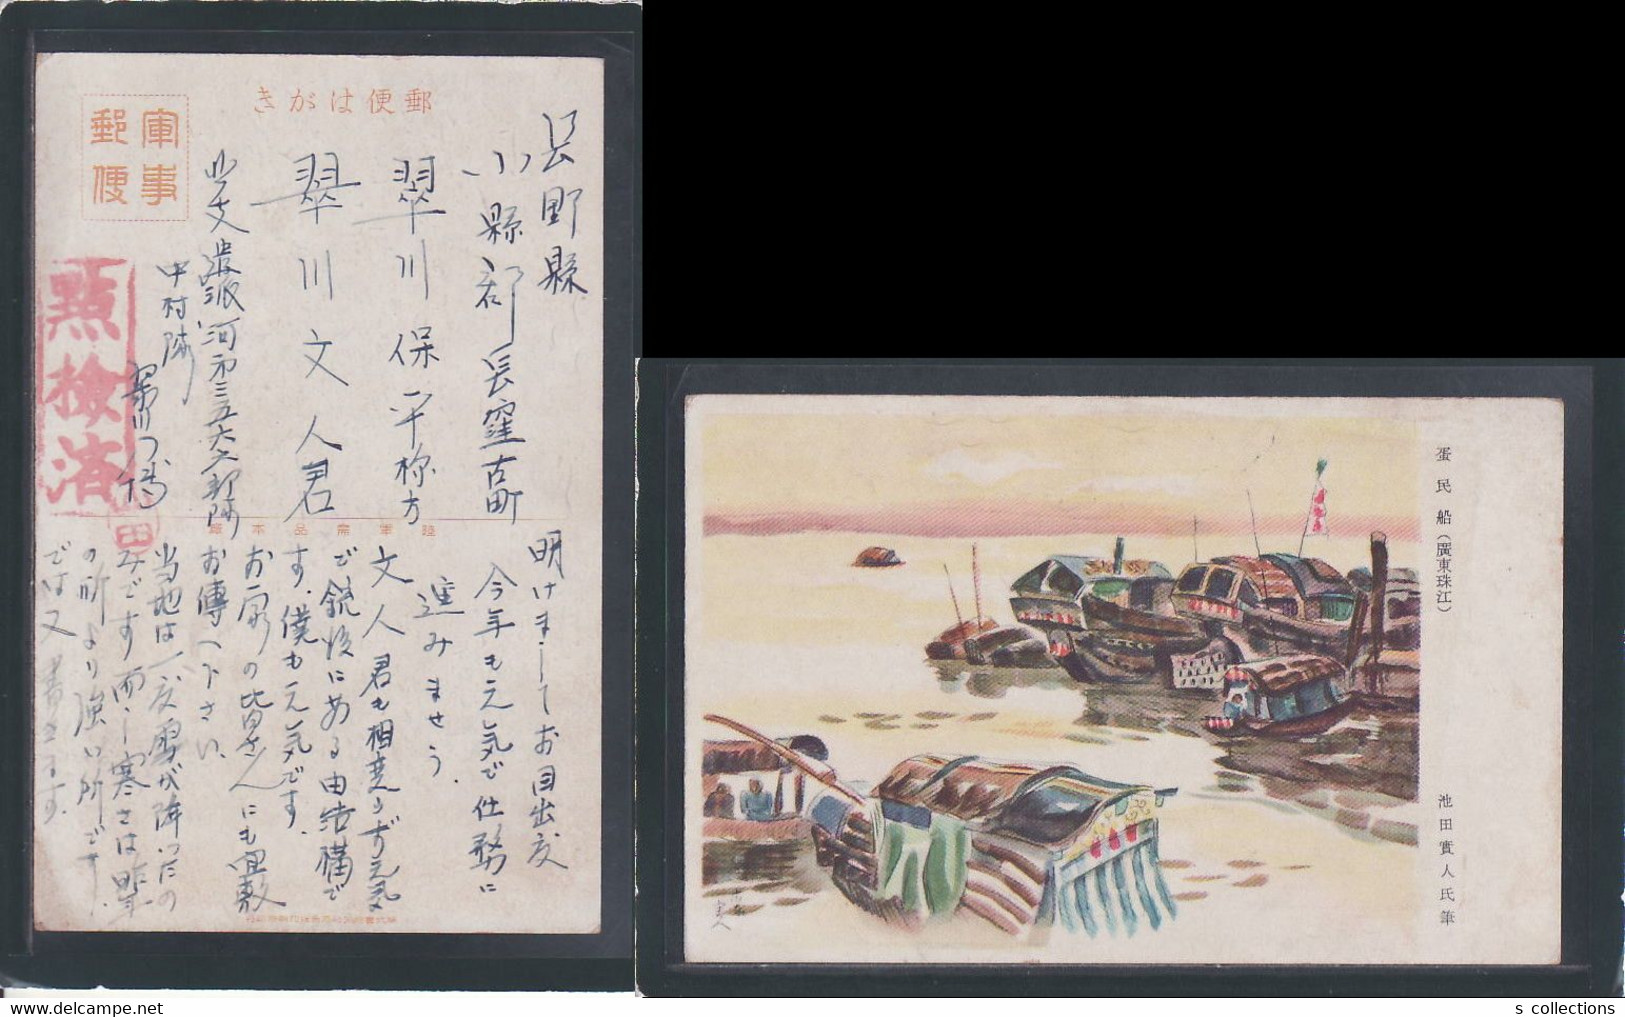 郵便はがき
軍事
郵便
長野縣
小縣郡長窪古町
翠川保平様方
翠川文人君
北支派遣河第三五六六部隊
中村隊
點檢済
陸軍需品本廠
明けましてお目出度
今年も元気で仕務に
進みませう．
文人君も相変らず元気
で銃後にある由結構で
す．僕も元気です．
お家の皆さんにも宜敷
お傳へ下さい、
当地は一度雪が降ったの
みです而し寒さは
の所より強い所です．
では又書きます．
蛋民船（廣東珠江）
池田實人氏筆
s collections